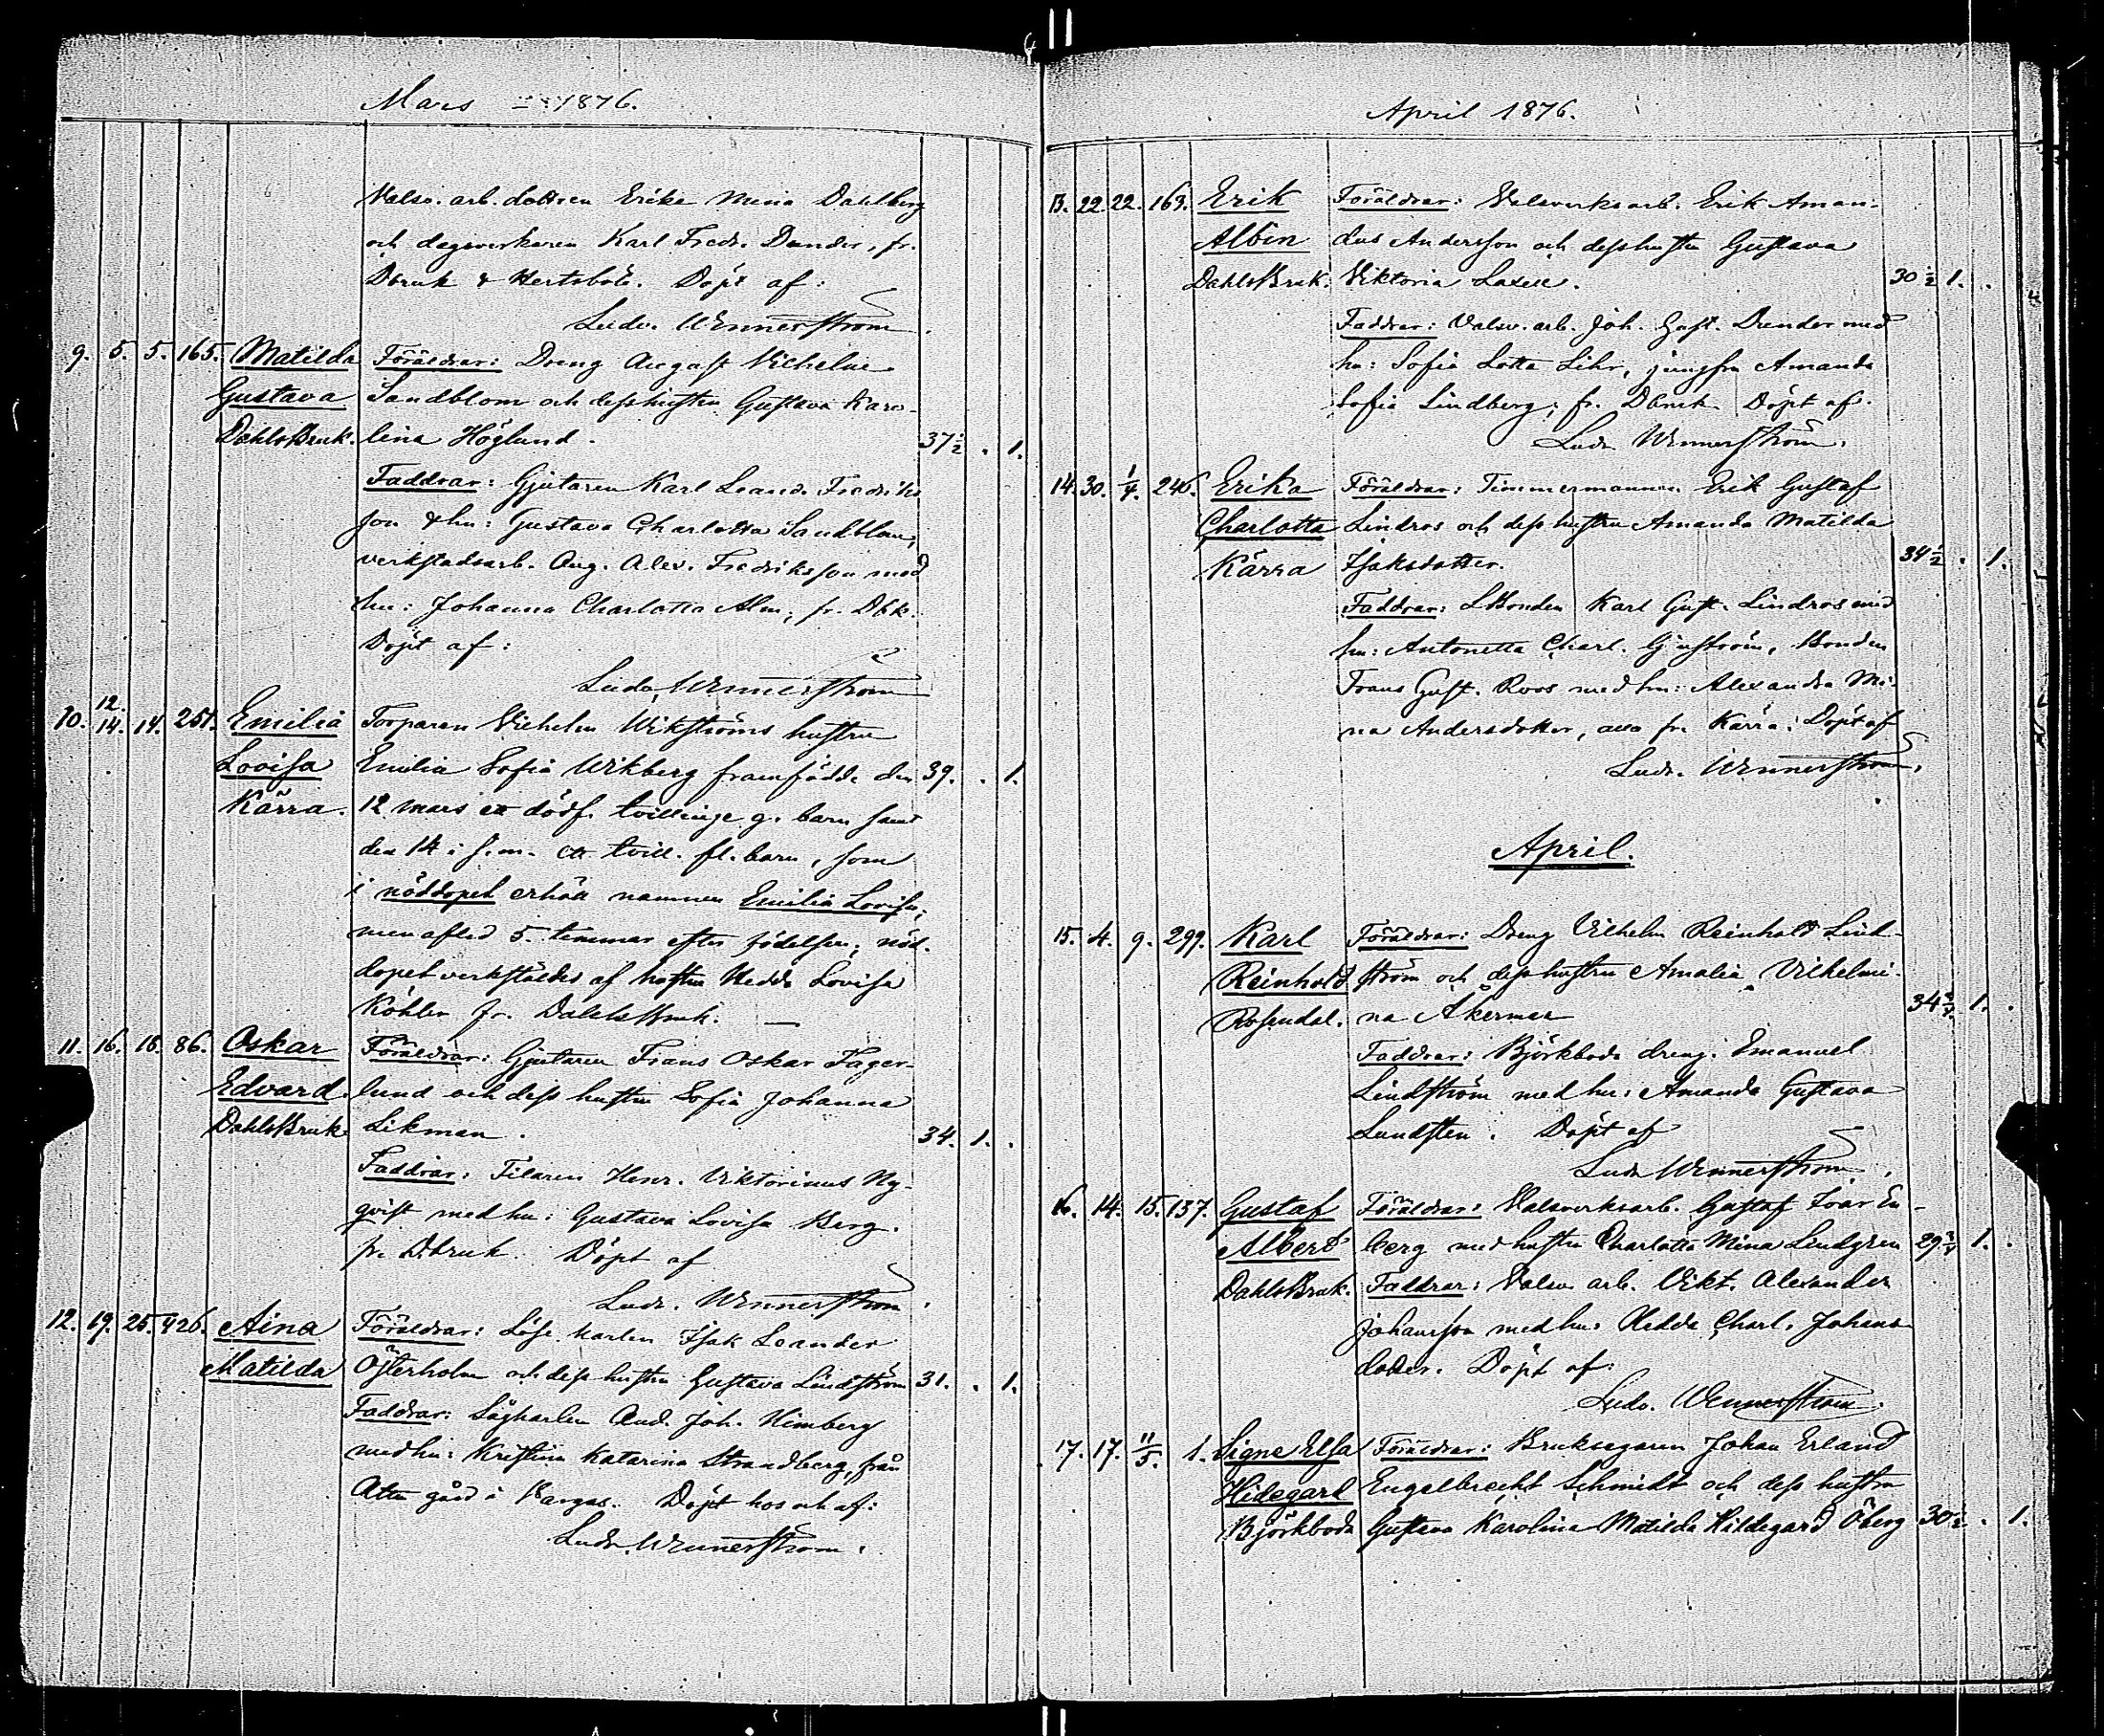 Mars 1876.
Valsv. arb. dottren Erika Mina Dahlberg
och dagsverkaren Karl Fredr. Dunder, fr.
Dbruk & Hertsböle. Döpt af:
Ludv. Wennerström
9. 5. 5. 165. Matilda Föräldrar: Dreng August Vilhelm
Gustava Sandblom och dess hustru Gustava Karo-
DahlsBruk. lina Höglund. 37 1/2 . 1.
Faddrar: Gjutaren Karl Leand. Fredriks
son & hu: Gustava Charlotta Sandblom,
verkstadsarb. Aug. Alex. Fredriksson med
hu: Johanna Charlotta Alm, fr. Dbk.
Döpt af:
Ludv. Wennerström
10. 12. 14. 14. 251. Emilia Torparen Vilhelm Wikströms hustru
Lovisa Emilia Sofia Wikberg framfödde den 39. . 1.
Kärra. 12 mars ett dödf. tvillinge g. barn samt
den 14 i s.m. ett tvill. fl. barn, som
i nöddopet erhöll namnen Emilia Lovisa,
men afled 5. timmar efter födelsen; nöd-
dopet verkstäldes af hustru Hedda Lovisa
Köhler fr. DahlsBruk.
11. 16. 16. 86. Oskar Föräldrar: Gjutaren Frans Oskar Fager-
Edvard. lund och dess hustru Sofia Johanna
DahlsBruk Likman. 34. 1. .
Faddrar: Filaren Henr. Viktorinus Ny-
qvist med hu: Gustava Lovisa Berg.
fr. Dbruk. Döpt af
Ludv. Wennerström.
12. 19. 25. 426. Aina Föräldrar: Löse karlen Isak Leander
Matilda Österholm och dess hustru Gustava Lindström 31. . 1.
Faddrar: Sågkarlen And. Joh. Himberg
med hu: Kristina Katarina Strandberg, från
Attu gård i Pargas. Döpt hos och af:
Ludv. Wennerström.
April 1876.
13. 22. 22. 163. Erik Föräldrar: Valsverksarb. Erik Aman-
Albin dus Andersson och dess hustru Gustava
DahlsBruk. Viktoria Laxell. 30 1/2 1. .
Faddrar: Valsv. arb. Joh. Gust. Dunder med
hu: Sofia Lotta Lihr, jungfru Amanda
Sofia Lindberg; fr. Dbruk. Döpt af
Ludv. Wennerström.
14. 30. 1/4. 246. Erika Föräldrar: Timmermannen Erik Gustaf
Charlotta Lindros och dess hustru Amanda Matilda
Kärra Isaksdotter. 34 1/2 . 1.
Faddrar: LBonden Karl Gust. Lindros med
hu: Antonetta Charl. Bonden
Frans Gust. Roos med hu: Alexandra Mi-
na Andersdotter, alla fr. Kärra. Döpt af
Ludv. Wennerström.
April.
15. 4. 9. 299. Karl Föräldrar: Dreng Vilhelm Reinhold Lind-
Reinhold ström och dess hustru Amalia Vilhelmi-
Rosendal. na Åkerman 34 3/4. 1. .
Faddrar: Björkboda dreng. Emanuel
Lindström med hu: Amanda Gustava
Lundsten. Döpt af
Ludv Wennerström.
16. 14. 15. 137. Gustaf Föräldrar: Valsverksarb. Gustaf Ivar En-
Albert berg med hustru Charlotta Mina Lindgren 29 3/4 1. .
DahlsBruk. Faddrar: Valsv. arb. Vikt. Alexander
Johansson med hu: Hedda Charl. Johans-
dotter. Döpt af:
Ludv. Wennerström.
17. 17. 11/5. 1. Signe Elsa Föräldrar: Bruksegaren Johan Erland
Hidegard Engelbrecht Schmidt och dess hustru
Björkboda Gustava Karolina Matilda Hildegard Öberg 30 1/2 . 1.